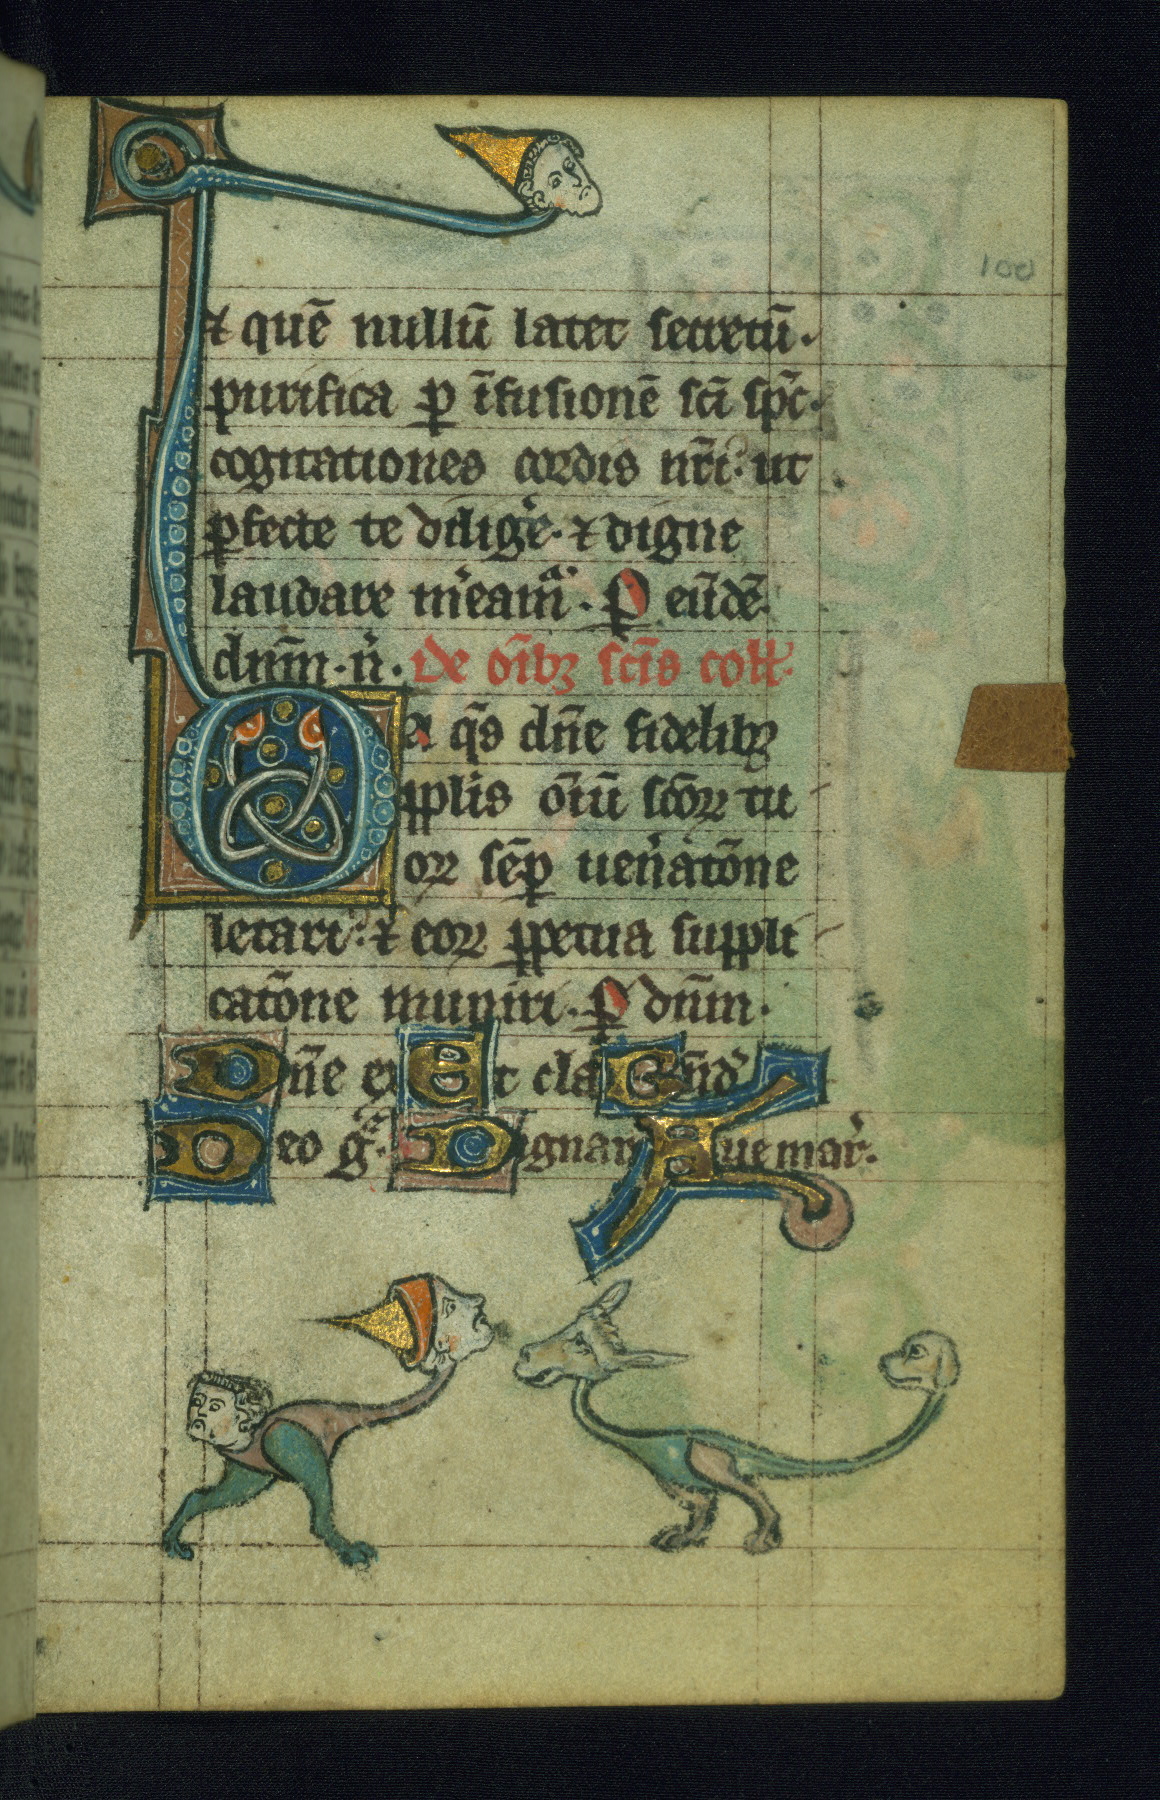 100
⁊ quē nullū latet secretū.
purifica ꝑ īfusionē sc̄i sp̄c.
cogitationes cordis nr̄i: ut
ꝑfecte te dilige᷑. ⁊ digne
laudare m͛eam᷑. ꝑ eūdē
dn̄m. n̄. De om̄ibꝫ sc̄is coll᷑.
Da q̄s dn̄e fidelibꝫ
ꝑplis om̄iū sc̄oꝝ tu
oꝝ sēꝑ uen̄atōne
letari: ⁊ eoꝝ ꝑpetua suppli
catōne muniri. ꝑ dn̄m.
Dn̄e ex Et cla Bn̄d᷑
Deo gᷓ. Dignar Aue mar᷑.